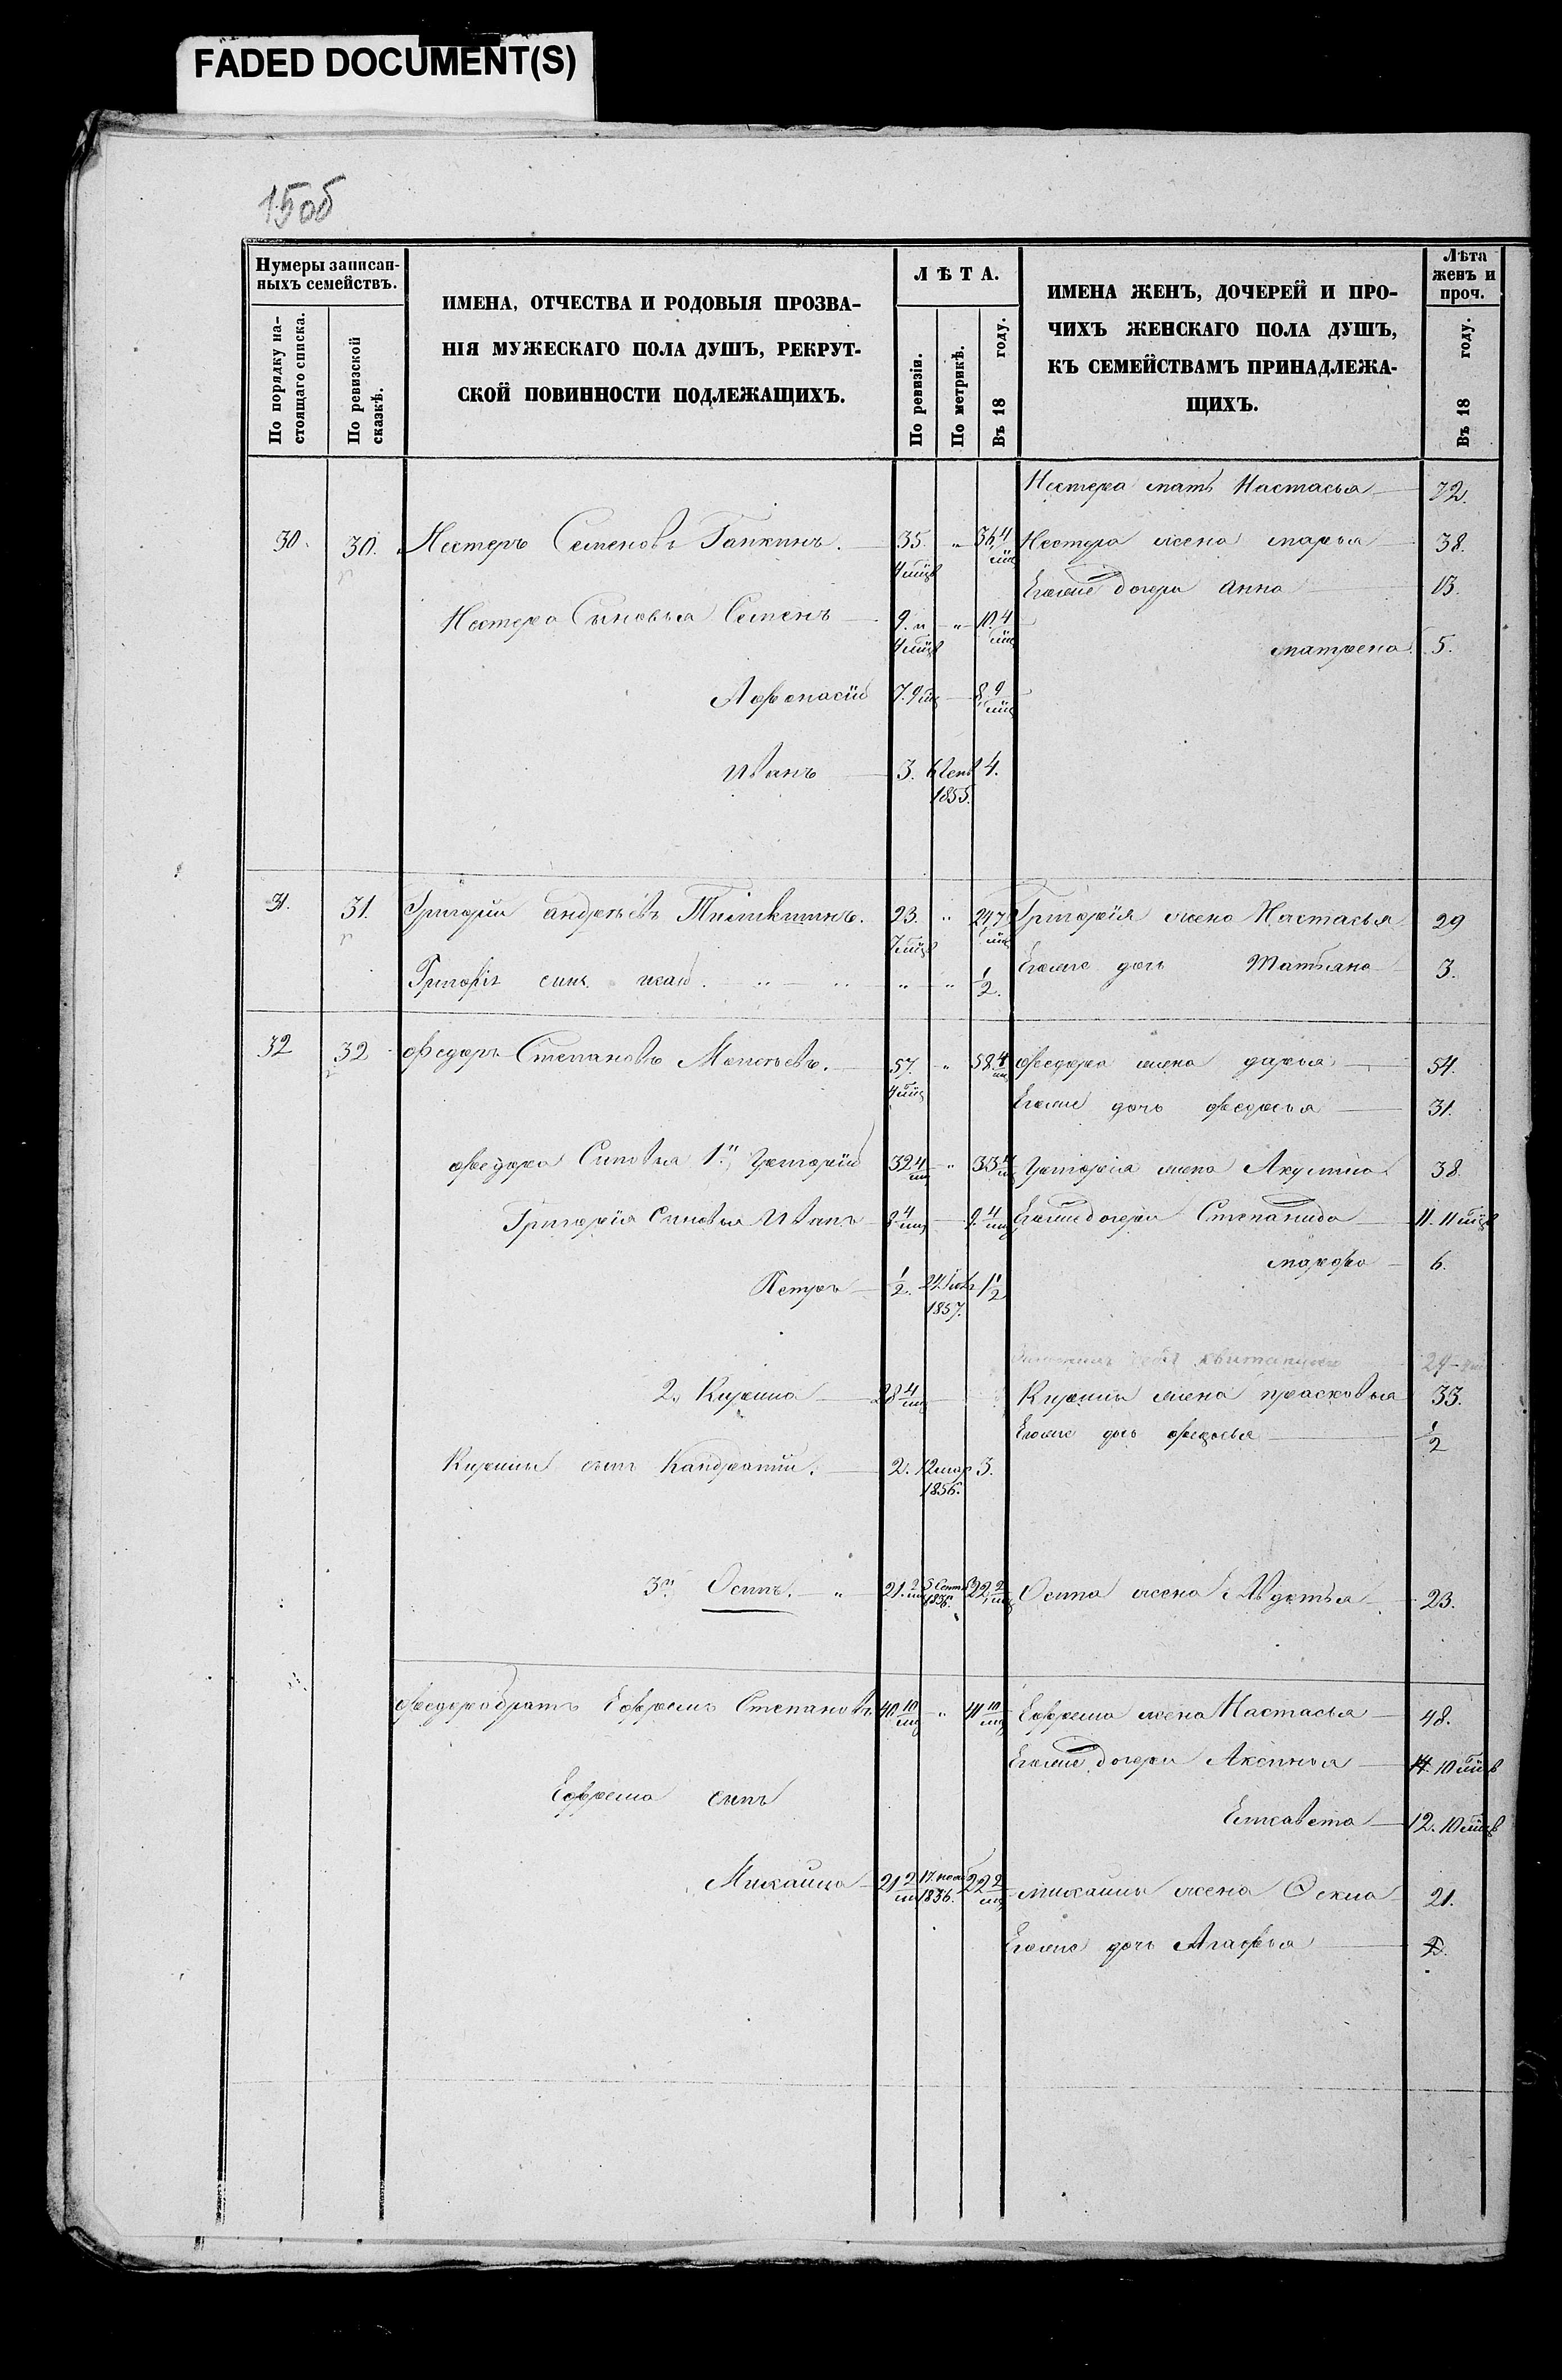 FADED DOCUMENT(S)
15об
Нумеры записан-
ныхъ семействъ.
По порядку на-
стоящаго списка.
По ревизской
сказкѣ.
ИМЕНА, ОТЧЕСТВА И РОДОВЫЯ ПРОЗВА-
НІЯ МУЖЕСКАГО ПОЛА ДУШЪ, РЕКРУТ-
СКОЙ ПОВИННОСТИ ПОДЛЕЖАЩИХЪ.
ЛѢТА.
По ревизіи.
По метрикѣ.
Въ 18 году.
ИМЕНА ЖЕНЪ, ДОЧЕРЕЙ И ПРО-
ЧИХЪ ЖЕНСКАГО ПОЛА ДУШЪ,
КЪ СЕМЕЙСТВАМЪ ПРИНАДЛЕЖА-
ЩИХЪ.
Лѣта
женъ и
проч.
Въ 18 году.
Нестера мать Настасья 72.
30. 30. Нестеръ Семеновъ Гапкинъ. 35. 4 мцв " 36 4 мц Нестера жена марья 38.
Егоже дочери анна 13.
Нестера Сыновья Семенъ 9. и 4 мцв " 10. 4 мц
матрена 5.
Афонасій 7. 9 мц 8 9 мц
Иванъ 3. 1855. 4.
31. 31. Григорій андреевъ 23. 7 мцв " 24 7 мц Григорія жена Настасья 29
Егоже дочь Татьяна 3.
Григорія сынъ " " 1/2.
32 32 Федоръ Степановъ 57. 4 мц " 58 4 мц федора жена дарья 54.
Егоже дочь федосья 31.
федора Сыновья 1.й Григорій 32 4 мц " 33 4 мц Григорія жена Акулина 38.
Григорія Сыновья Иванъ 8 4 мц 9. 4 мц Егоже дочери Степанида 11. 11 мцв
марфа 6.
Петръ 1/2. 24 1857. 1 1/2
квитанцію 29
2. Кирила 28 4 мц Кирилы жена прасковья 33.
Егоже дочь федосья 1/2
Кирилы сынъ Кандратій. 2. 12 мар 1856. 3.
3й Осипъ. " 21. 2 мц 5 Сент 1836. 22 2 мц Осипа жена Авдотья 23.
федора братъ Ефремъ Степановъ 40 10 мц " 41 10 мц Ефрема жена Настасья 48.
Егоже дочери Аксинья 14. 10 мцв
Ефрема сынъ
Елисавета 12. 10 мцв
Михаила 21 2 мц 17. нояб 1836. 22 2 мц михаилы жена 21.
Егоже дочь Агафья